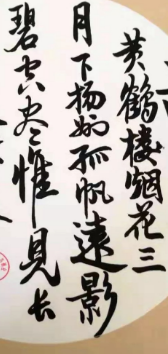 黄鹤楼烟花三
月下扬州孤帆远影
碧空尽惟见长